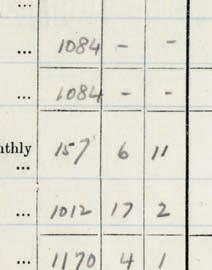 ...
... 1084 - -
... 1084 - -
nthly 157 6 11
...
... 1012 17 2
... 1170 4 1